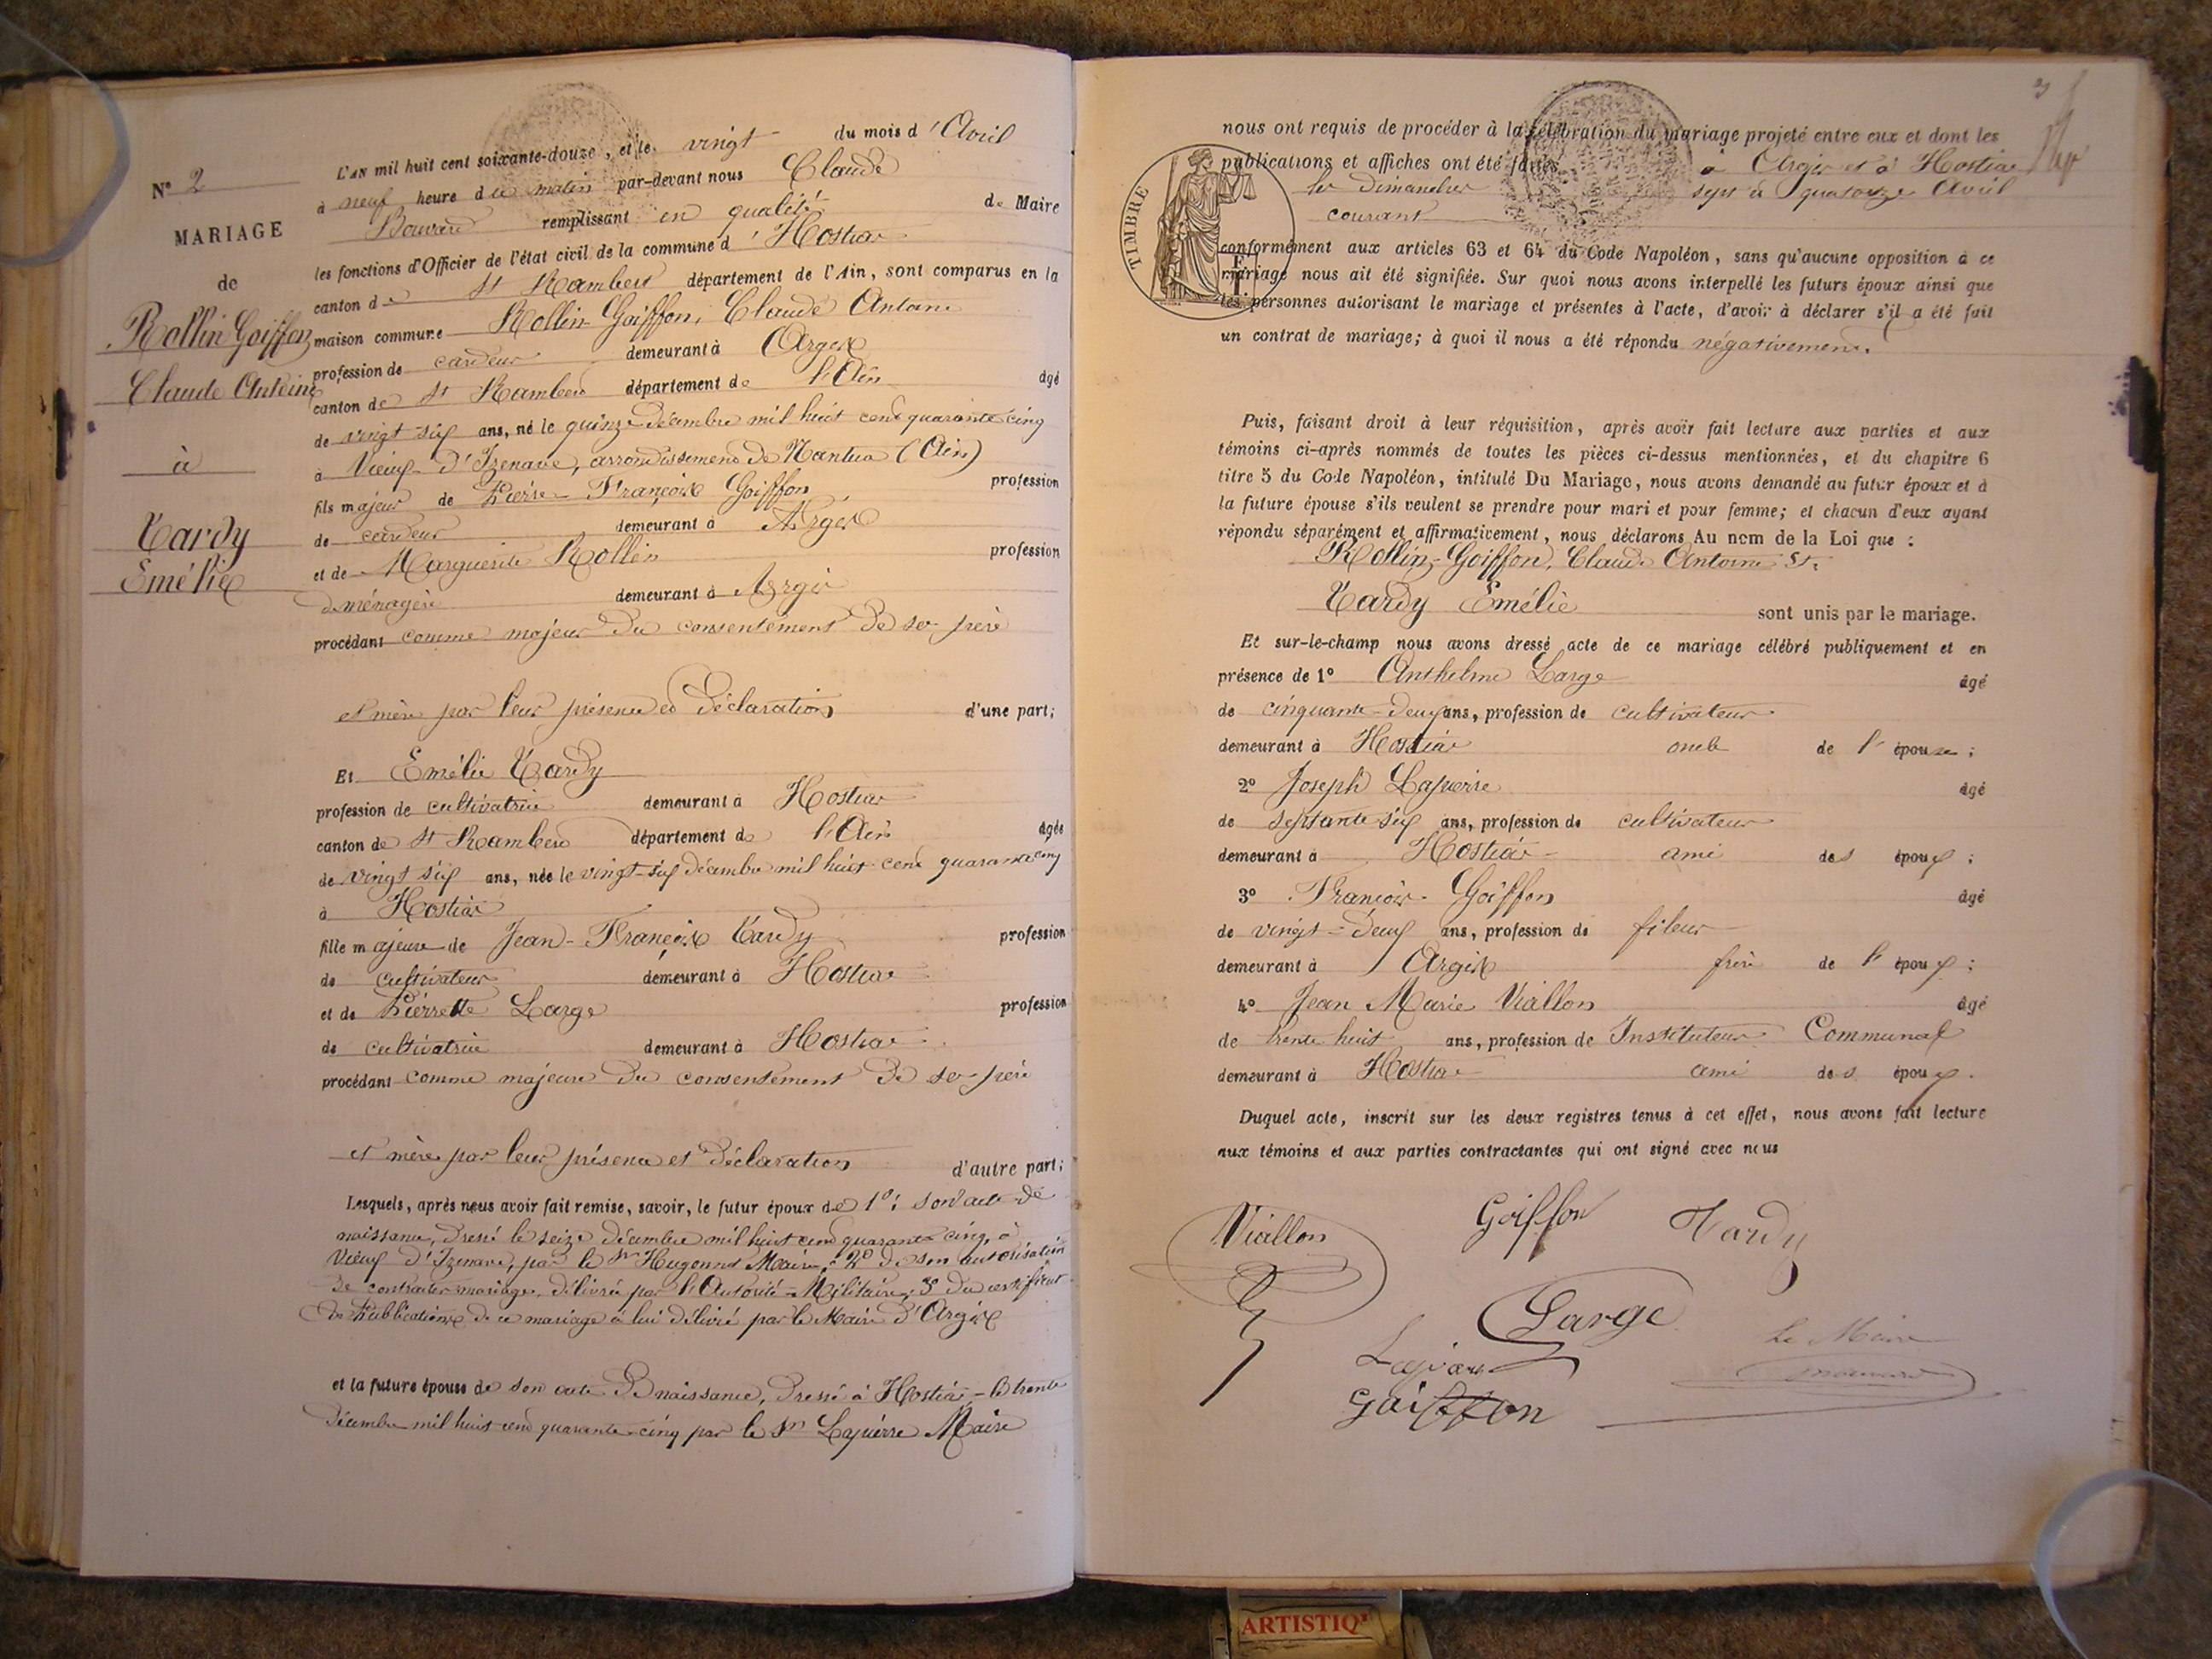 N° 2
MARIAGE
de
Rollin Goiffon
Claude Antoine
à
Tardy
Emélie
L'AN mil huit cent soixante-douze, et le vingt du mois d'Avril
à neuf heure du matin par-devant nous Claude
Bouvard remplissant en qualité de Maire
les fonctions d'Officier de l'état civil de la commune d'Hostiaz
canton de St Rambert département de l'Ain, sont comparus en la
maison commune Rollin-Goiffon, Claude Antoine
profession de cardeur demeurant à Argis
canton de St Rambert département de l'Ain âgé
de vingt-six ans, né le quinze décembre mil huit cent quarante cinq
à Vieux d'Izenave, arrondissement de Nantua (Ain)
fils majeur de Pierre-François Goiffon profession
de cardeur demeurant à Argis
et de Marguerite Rollin profession
de ménagère demeurant à Argis
procédant comme majeur du consentement de ses père
et mère par leur présence et déclaration d'une part;
Et Emélie Tardy
profession de cultivatrice demeurant à Hostiaz
canton de St Rambert département de l'Ain âgée
de vingt six ans, née le vingt-six décembre mil huit cent quarante cinq
à Hostiaz
fille majeure de Jean-François Tardy profession
de cultivateur demeurant à Hostiaz
et de Pierrette Large profession
de cultivatrice demeurant à Hostiaz
procédant comme majeure du consentement de ses père
et mère par leur présence et déclaration d'autre part;
Lesquels, après nous avoir fait remise, savoir, le futur époux de 1°: son acte de
naissance, dressé le seize décembre mil huit cent quarante cinq, à
Vieux d'Izenave, par le Sr Hugonnet Maire; 2° de son autorisation
de contracter mariage délivrée par l'Autorité-Militaire; 3° du certificat
de Publications de ce mariage à lui délivré par le Maire d'Argis
et la future épouse de son acte de naissance, dressé à Hostiaz - le trente
décembre mil huit cent quarante-cinq par le Sr Lapierre Maire
nous ont requis de procéder à la célébration du mariage projeté entre eux et dont les
publications et affiches ont été faites à Argis et à Hostiaz
les dimanches sept et quatorze Avril
courant
TIMBRE
conformément aux articles 63 et 64 du Code Napoléon, sans qu'aucune opposition à ce
mariage nous ait été signifiée. Sur quoi nous avons interpellé les futurs époux ainsi que
les personnes autorisant le mariage et présentes à l'acte, d'avoir à déclarer s'il a été fait
un contrat de mariage; à quoi il nous a été répondu négativement.
Puis, faisant droit à leur réquisition, après avoir fait lecture aux parties et aux
témoins ci-après nommés de toutes les pièces ci-dessus mentionnées, et du chapitre 6
titre 5 du Code Napoléon, intitulé Du Mariage, nous avons demandé au futur époux et à
la future épouse s'ils veulent se prendre pour mari et pour femme; et chacun d'eux ayant
répondu séparément et affirmativement, nous déclarons Au nom de la Loi que :
Rollin-Goiffon, Claude Antoine Et
Tardy Emélie sont unis par le mariage.
Et sur-le-champ nous avons dressé acte de ce mariage célébré publiquement et en
présence de 1° Anthelme Large âgé
de cinquante-deux ans, profession de cultivateur
demeurant à Hostiaz oncle de l'épouse;
2° Joseph Lapierre âgé
de septante six ans, profession de cultivateur
demeurant à Hostiaz ami des époux;
3° François Goiffon âgé
de vingt-deux ans, profession de fileur
demeurant à Argis frère de l'époux;
4° Jean Marie Viallon âgé
de trente huit ans, profession de Instituteur Communal
demeurant à Hostiaz ami des époux.
Duquel acte, inscrit sur les deux registres tenus à cet effet, nous avons fait lecture
aux témoins et aux parties contractantes qui ont signé avec nous
Viallon Goiffon Tardy
Large
Le Maire
Goiffon
ARTISTIQ